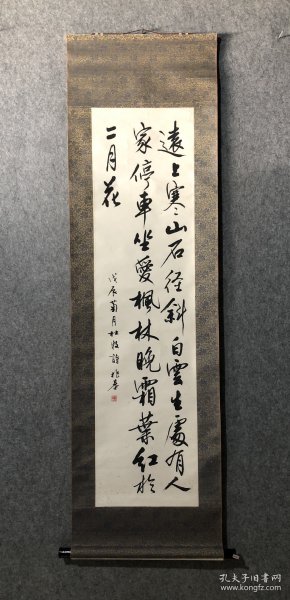 遠上寒山石径斜白雲生處有人
家停車坐愛楓林晚霜葉紅於
二月花
戊辰菊月杜牧詩
孔夫子旧书网